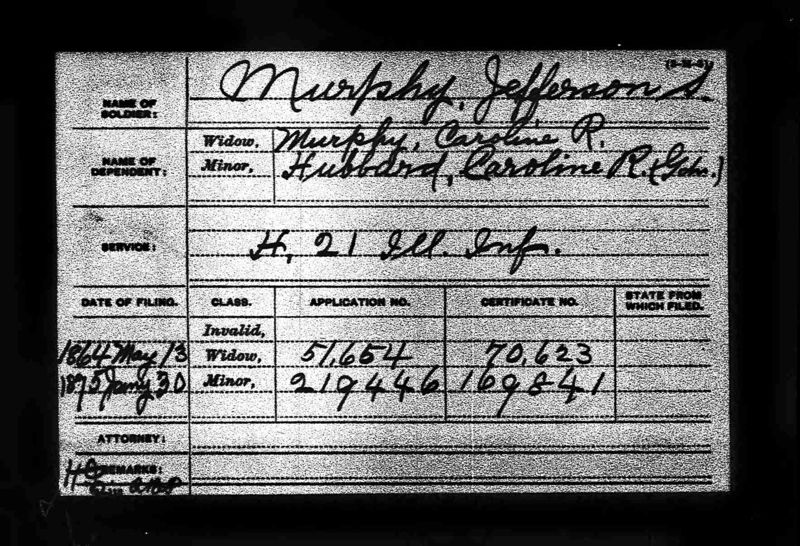 (3-H-61)
NAME OF SOLDIER: Murphy, Jefferson S.
NAME OF DEPENDENT: Widow, Murphy, Caroline R.
Minor, Hubbard, Caroline R. (Gdn.)
SERVICE: H, 21 Ill. Inf.
DATE OF FILING. CLASS. APPLICATION NO. CERTIFICATE NO. STATE FROM WHICH FILED.
Invalid,
1864 May 13 Widow, 51,654 70,623
1875 Jany 30 Minor, 219446 169841
ATTORNEY:
REMARKS: